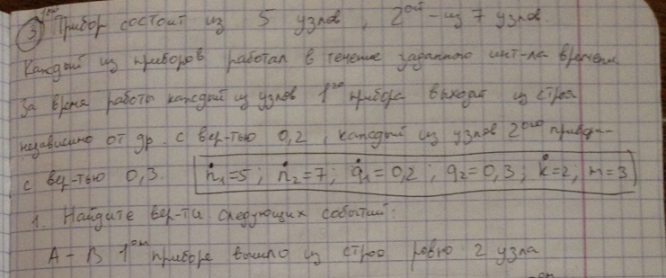 ③ 1ый Прибор состоит из 5 узлов, 2ой - из 7 узлов.
Каждый из приборов работал в течение заданного инт-ла времени
За время работы каждый из узлов 1ого прибора выходит из строя
независимо от др. с вер-тью 0,2, каждый из узлов 2ого прибора-
с вер-тью 0,3. n1=5; n2=7; q1=0,2; q2=0,3; k=2; m=3
1. Найдите вер-ти следующих событий:
A - В 1ом приборе вышло из строя ровно 2 узла